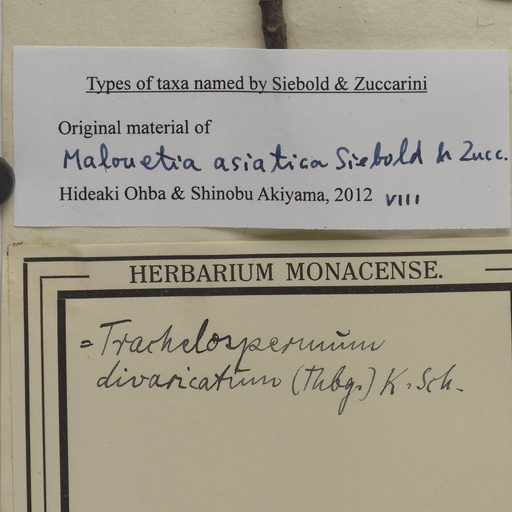 Types of taxa named by Siebold & Zuccarini
Original material of
Malouetia asiatica Siebold & Zucc.
Hideaki Ohba & Shinobu Akiyama, 2012 VIII
HERBARIUM MONACENSE.
= Trachelospermūm
divaricatūm (Thbg.) K. Sch.